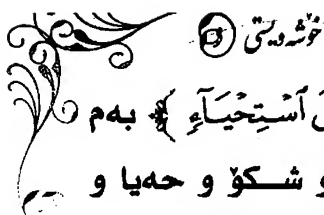 خۆشەویستی
ٱسْتِحْيَآءٍ ﴾ بەم
و شکۆ و حەیا و